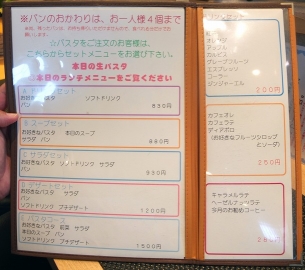 ※パンのおかわりは、お一人様4個まで
☆パスタをご注文のお客様は、
こちらからセットメニューをお選び下さい。
本日の生パスタ
本日のランチメニューをご覧ください
ソフトドリンク
パン 830円
B スープセット
お好きなパスタ 本日のスープ
サラダ パン 980円
C サラダセット
お好きなパスタ ソフトドリンク サラダ
パン 930円
D デザートセット
お好きなパスタ サラダ
パン
ソフトドリンク プチデザート 1200円
パスタコース
お好きなパスタ 前菜 サラダ
本日のスープ パン
ソフトドリンク プチデザート 1500円
アップル
カルピス
グレープフルーツ
コーラ
ジンジャーエール
200円
カフェオレ
カフェラテ
ディアボロ
(お好きなフルーツシロップ
とソーダ)
250円
キャラメルラテ
ヘーゼルナッツラテ
今月のお勧めコーヒー
250円